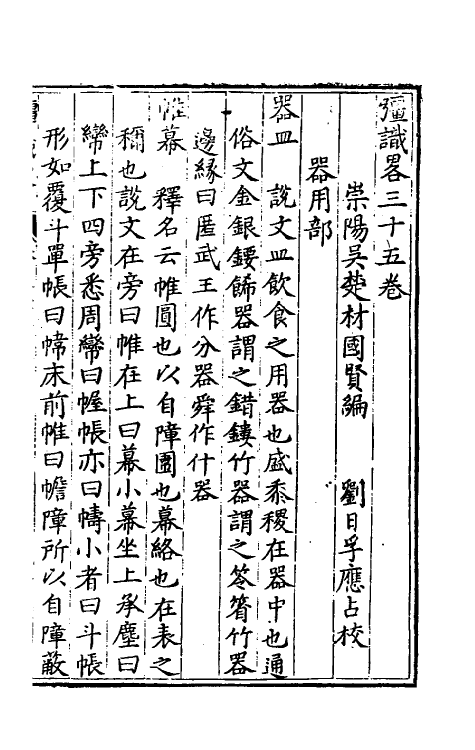 彊識畧三十五卷
崇陽吳楚材國賢編　劉日孚應占校
器用部
器皿　說文皿飲食之用器也盛黍稷在器中也通
俗文金銀鏤餙器謂之錯鏤竹器謂之笭箵竹器
邊緣曰匿武王作分器舜作什器
帷幕　釋名云帷圍也以自障圍也幕絡也在表之
稱也說文在旁曰帷在上曰幕小幕坐上承塵曰
帟上下四旁悉周帟曰幄帳亦曰幬小者曰斗帳
形如覆斗單帳曰㡘床前帷曰幨障所以自障蔽